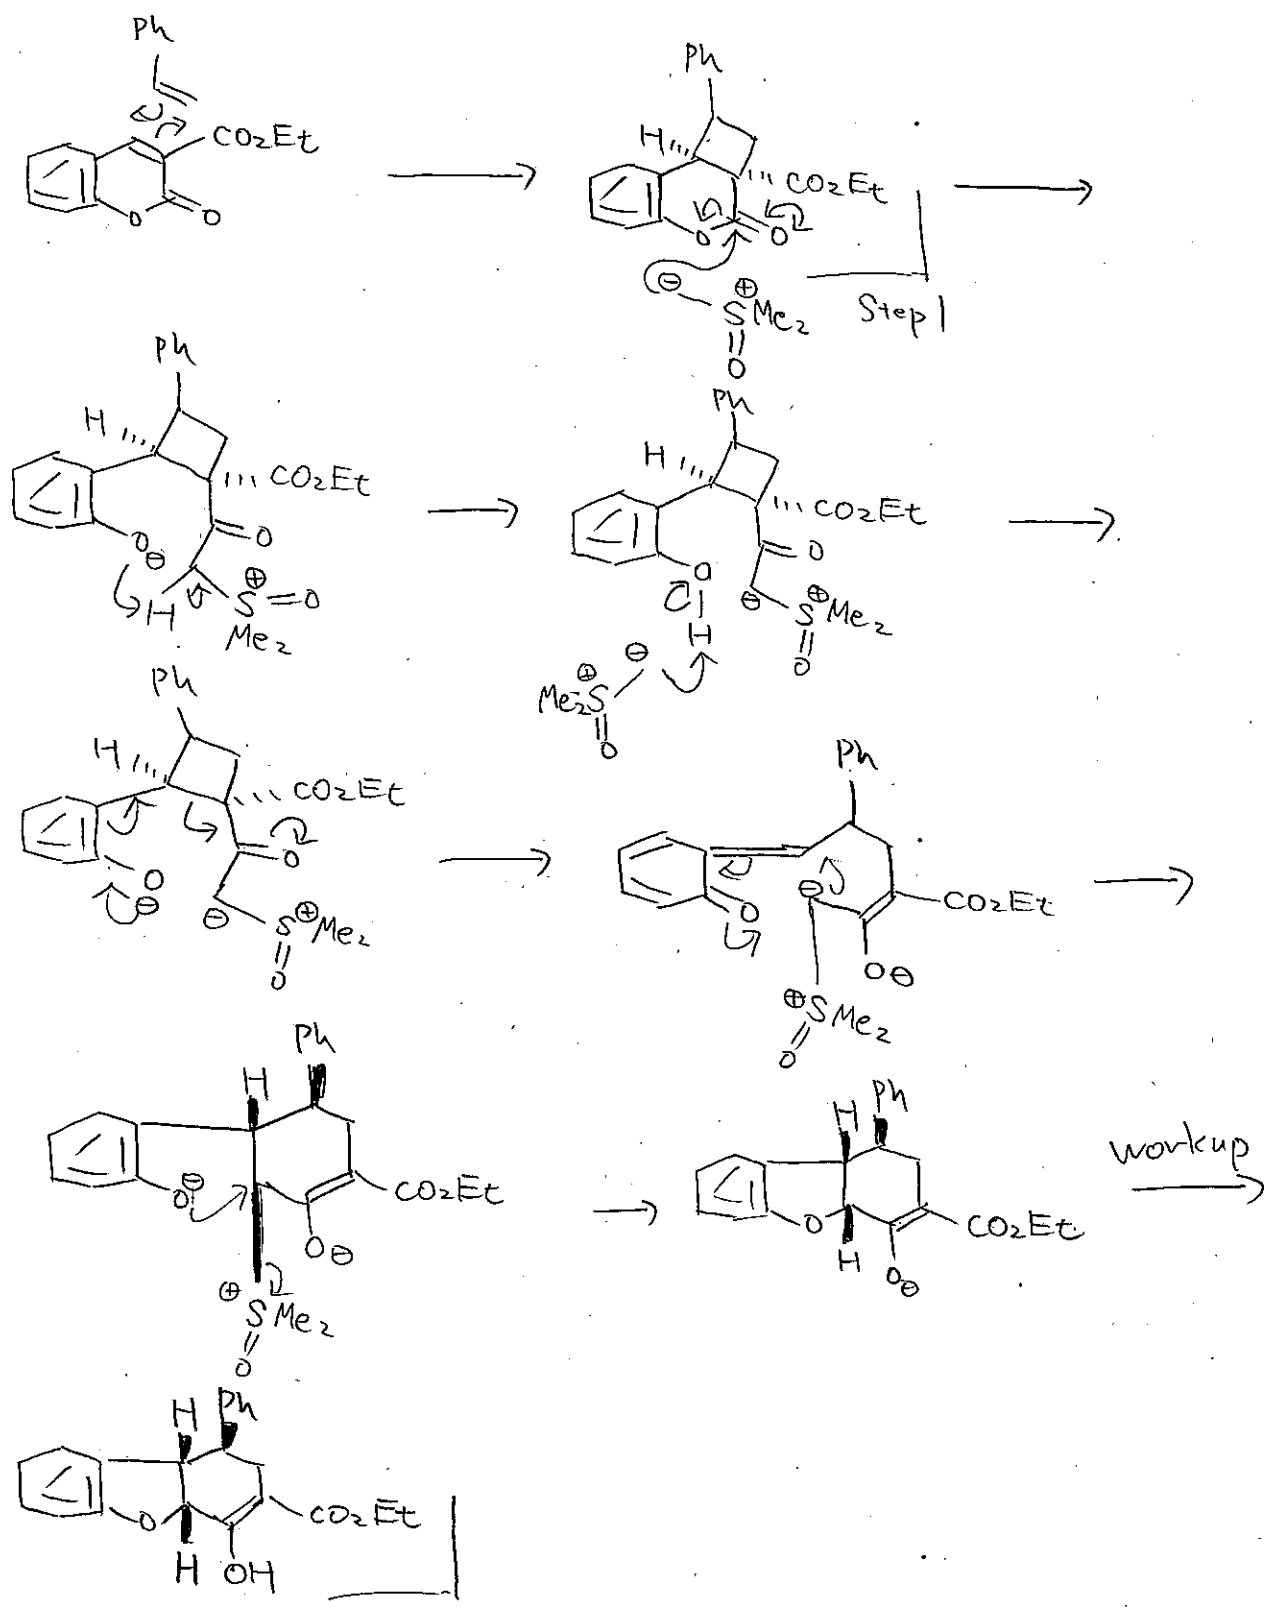 Ph
CO2Et
O
O
Ph
H
CO2Et
O
O
⊖
⊕
SMe2
O
Step 1
Ph
H
CO2Et
O
O⊖
H
⊕
S=O
Me2
Ph
H
CO2Et
O
O
H
⊖
⊕
SMe2
O
⊖
⊕
Me2S
O
Ph
H
CO2Et
O
O
⊖
⊖
⊕
SMe2
O
Ph
O
⊖
CO2Et
O⊖
⊕
SMe2
O
Ph
H
O⊖
CO2Et
O⊖
⊕
SMe2
O
H
Ph
O
H
CO2Et
O⊖
workup
H
Ph
O
H
CO2Et
OH